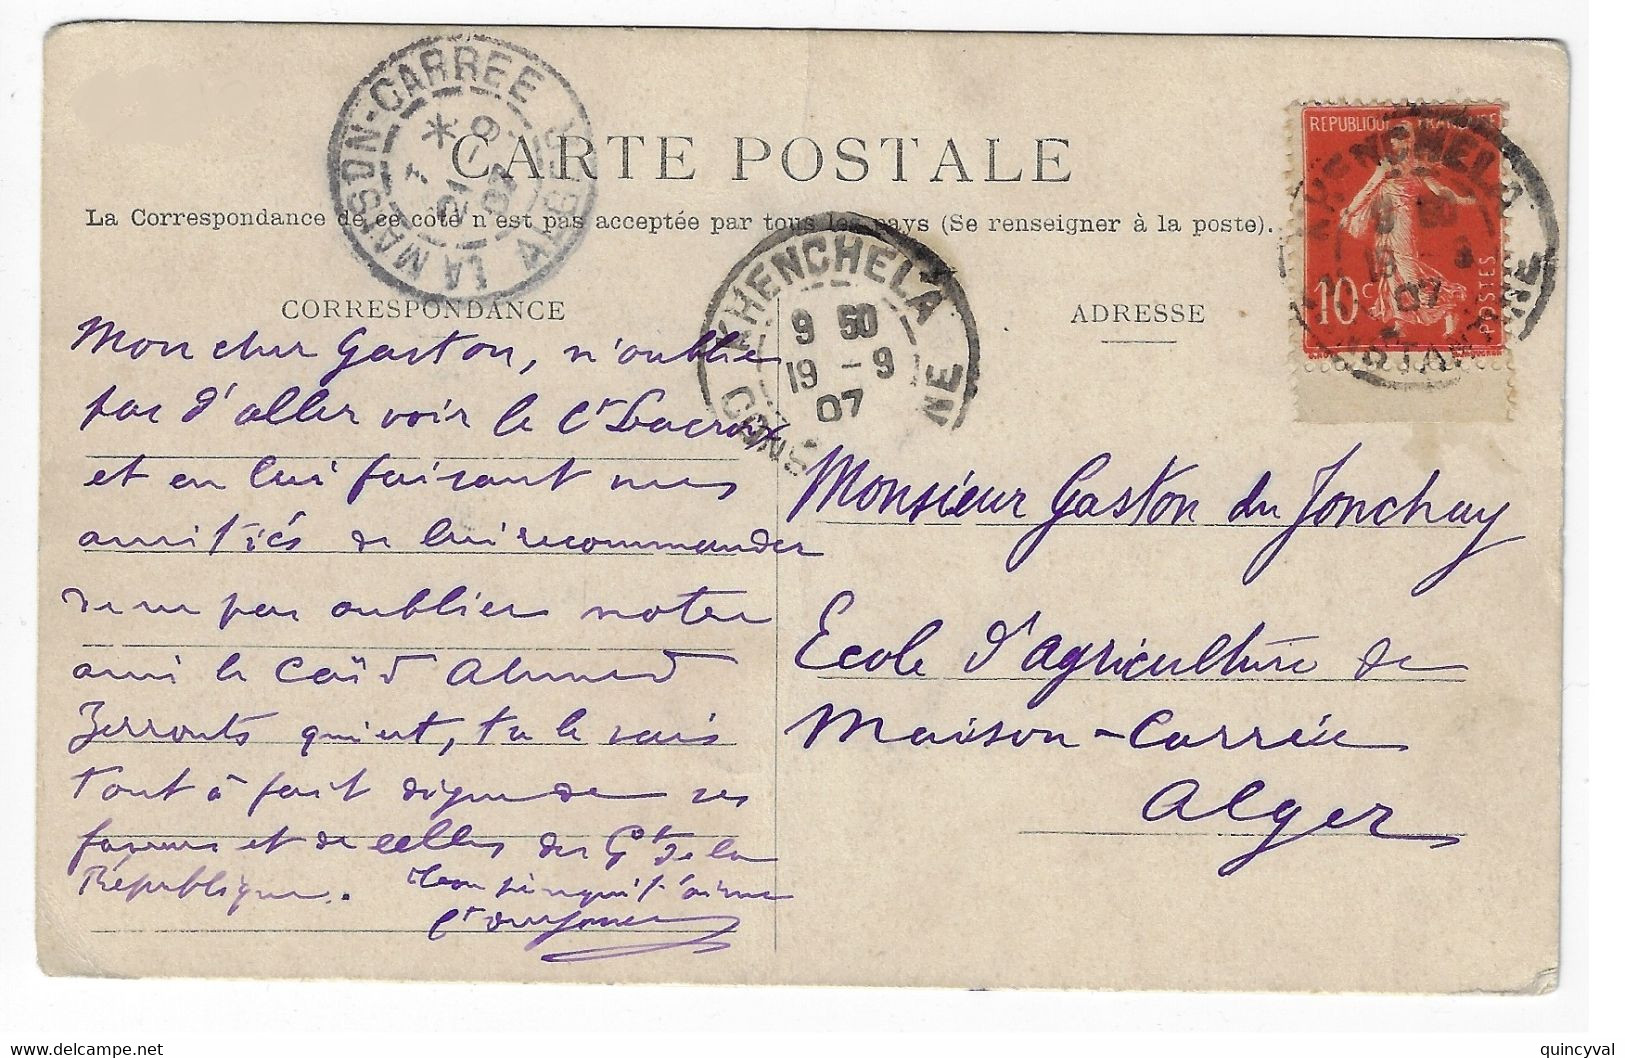 LA MAISON-CARREE
ALGER
21
CARTE POSTALE
La Correspondance de ce coté n'est pas acceptée par tous les pays (Se renseigner à la poste).
REPUBLIQUE FRANCAISE
10c
POSTES
KHENCHELA
9 50
19 - 9
07
CONSTANTINE
KHENCHELA
9 50
19 - 9
07
CONS NE
CORRESPONDANCE
ADRESSE
Mon cher Gaston, n'oublie
pas d'aller voir le Ct Lacroix
et en lui faisant mes
amitiés de lui recommander
de ne pas oublier notre
ami le Caïd Ahmed
qui est, tu le sais
tout à fait digne de ses
faveurs et de celles du Gt de la
République.
t'aime
Monsieur Gaston du Jonchay
Ecole d'agriculture de
Maison-Carrée
Alger
delcampe.net
quincyval